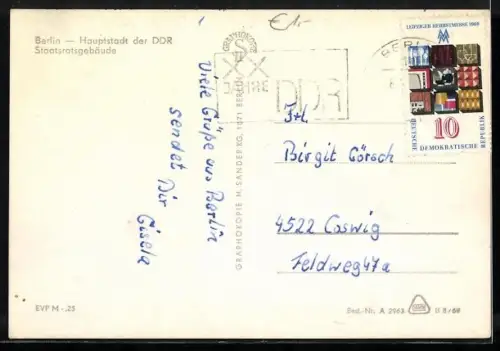 Berlin — Hauptstadt der DDR
Staatsratsgebäude
€1,-
GRAPHOKOPIE
XX
JAHRE
DDR
BERLIN
LEIPZIGER HERBSTMESSE 1969
10
DEUTSCHE
DEMOKRATISCHE REPUBLIK
Viele Grüße aus Berlin
sendet Dir
Gisela
GRAPHOKOPIE H. SANDER KG, 1071 BERLIN
Frl.
Birgit Görsch
4522 Coswig
Feldweg 47a
EVP M -,25
Best.-Nr. A 2963
II 8/69